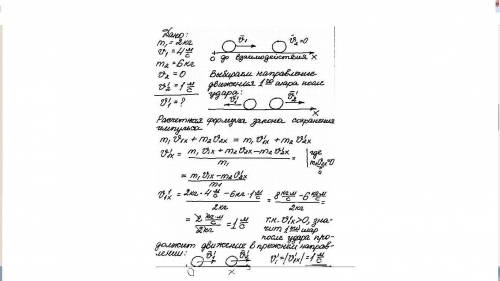 Дано:
m₁ = 2кг
v₁ = 4 м/с
m₂ = 6кг
v₂ = 0
v₂' = 1 м/с
v₁' = ?
v⃗₁ v⃗₂=0
0 до взаимодействия X
Выбираем направление
движения 1го шара после
удара:
v⃗₁' v⃗₂'
X
Расчетная формула закона сохранения
импульса
m₁v₁ₓ + m₂v₂ₓ = m₁v₁ₓ' + m₂v₂ₓ'
v₁ₓ' = (m₁v₁ₓ + m₂v₂ₓ − m₂v₂ₓ')/m₁ = | где m₂v₂ₓ=0
= (m₁v₁ₓ − m₂v₂ₓ')/m₁
v₁ₓ' = (2кг·4 м/с − 6кг·1 м/с)/2кг = (8 кг·м/с − 6 кг·м/с)/2кг =
= (2 кг·м/с)/2кг = 1 м/с т.к. v₁ₓ'>0, зна-
чит 1ый шар
после удара про-
должит движение в прежнем направ-
лении: v⃗₁' v⃗₂' v₁' = |v₁ₓ'| = 1 м/с
0 X